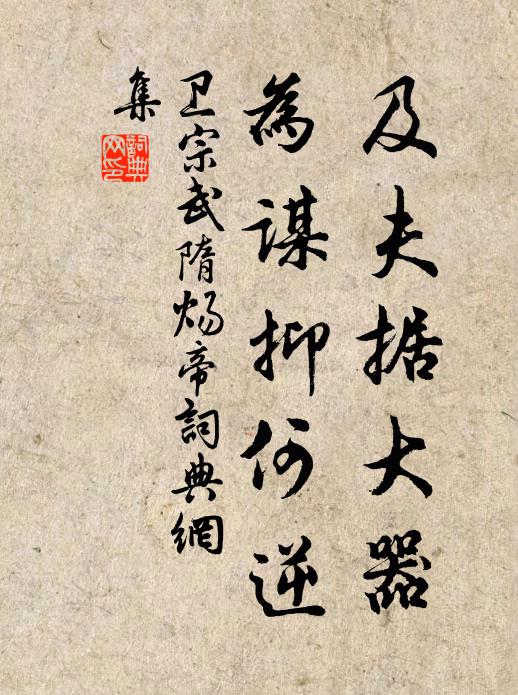 及夫据大器
為謀抑何逆
卫宗武隋炀帝詞典網
集
詞典
网印